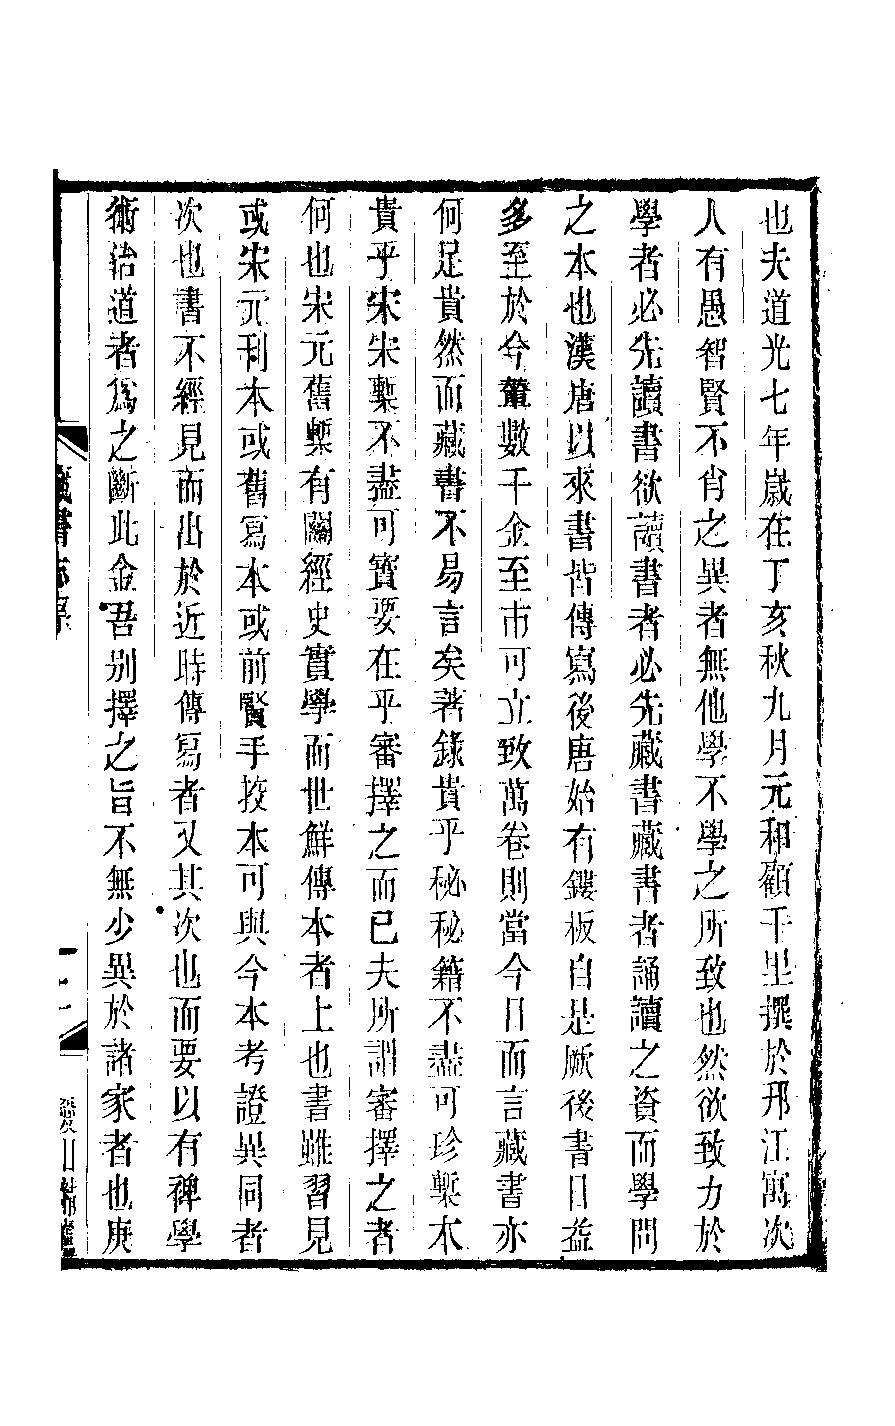 也夫道光七年歲在丁亥秋九月元和顧千里撰於邗江寓次
人有愚智賢不肖之異者無他學不學之所致也然欲致力於
學者必先讀書欲讀書者必先藏書藏書者誦讀之資而學問
之本也漢唐以來書皆傳寫後唐始有鏤板自是厥後書日益
多至於今輦數千金至市可立致萬卷則當今日而言藏書亦
何足貴然而藏書不易言矣著錄貴乎秘秘籍不盡可珍槧本
貴乎宋宋槧不盡可寶要在乎審擇之而已夫所謂審擇之者
何也宋元舊槧有關經史實學而世鮮傳本者上也書雖習見
或宋元刊本或舊寫本或前賢手挍本可與今本考證異同者
次也書不經見而出於近時傳寫者又其次也而要以有裨學
術治道者爲之斷此金吾別擇之旨不無少異於諸家者也庚
藏書志